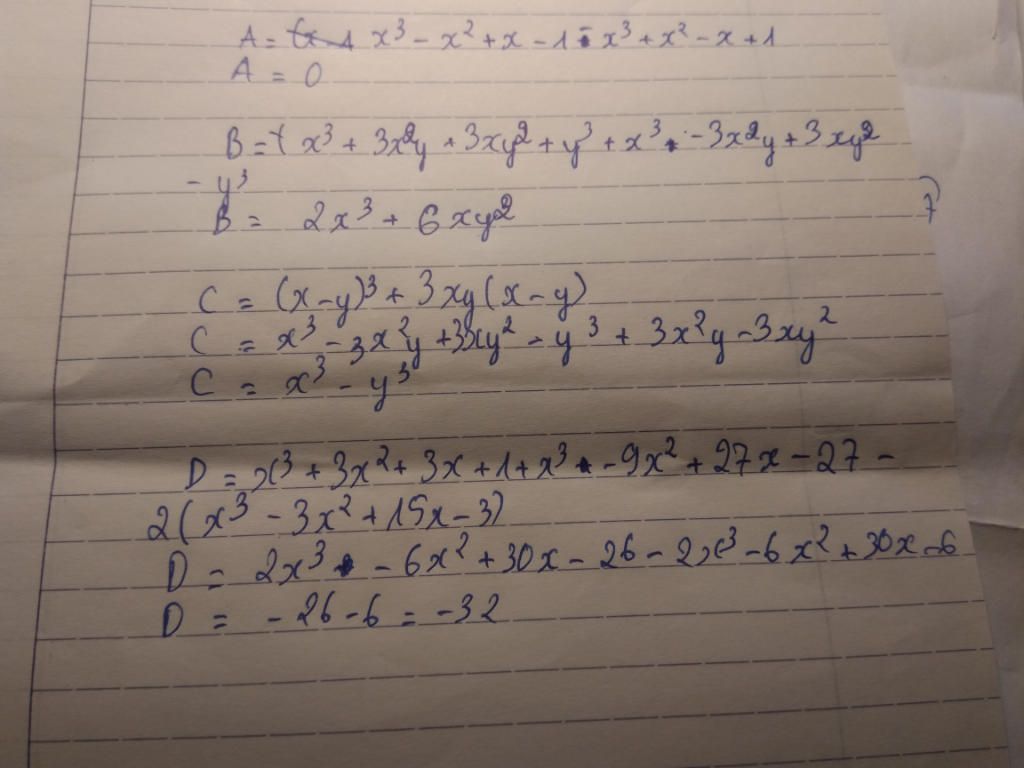 A = x³ - x² + x - 1 - x³ + x² - x + 1
A = 0
B = x³ + 3x²y + 3xy² + y³ + x³ - 3x²y + 3xy²
- y³
B = 2x³ + 6xy²
C = (x-y)³ + 3xy(x-y)
C = x³ - 3x²y + 3xy² - y³ + 3x²y - 3xy²
C = x³ - y³
D = x³ + 3x² + 3x + 1 + x³ - 9x² + 27x - 27 -
2(x³ - 3x² + 15x - 3)
D = 2x³ - 6x² + 30x - 26 - 2x³ - 6x² + 30x - 6
D = - 26 - 6 = - 32